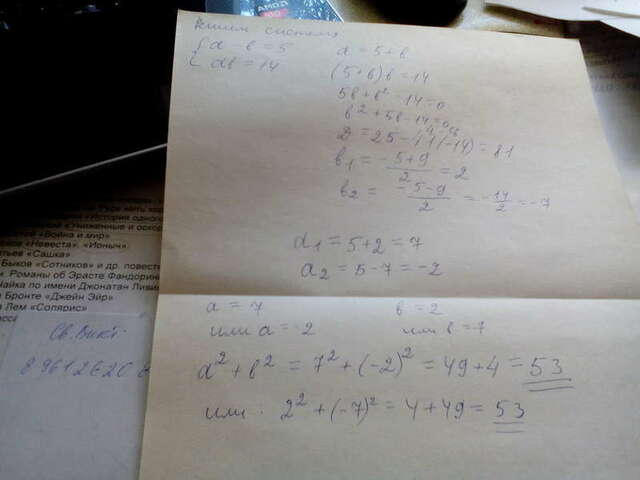 AMD
Решим систему
{ a - b = 5      a = 5 + b
{ ab = 14      (5+b)b = 14
5b + b² - 14 = 0
b² + 5b - 14 = 0
D = 25 - 4·1·(-14) = 81
b₁ = (-5+9)/2 = 2
b₂ = (-5-9)/2 = -14/2 = -7
a₁ = 5+2 = 7
a₂ = 5-7 = -2
a = 7      b = 2
или a = -2      или b = 7
a² + b² = 7² + (-2)² = 49 + 4 = 53
или 2² + (-7)² = 4 + 49 = 53
«История одного
«Униженные и оскор
«Война и мир»
«Невеста», «Ионыч»
«Сашка»
Быков «Сотников» и др. повести
Романы об Эрасте Фандорине
Чайка по имени Джонатан Ливи
Бронте «Джейн Эйр»
Лем «Солярис»
Св. Викт.
89612620